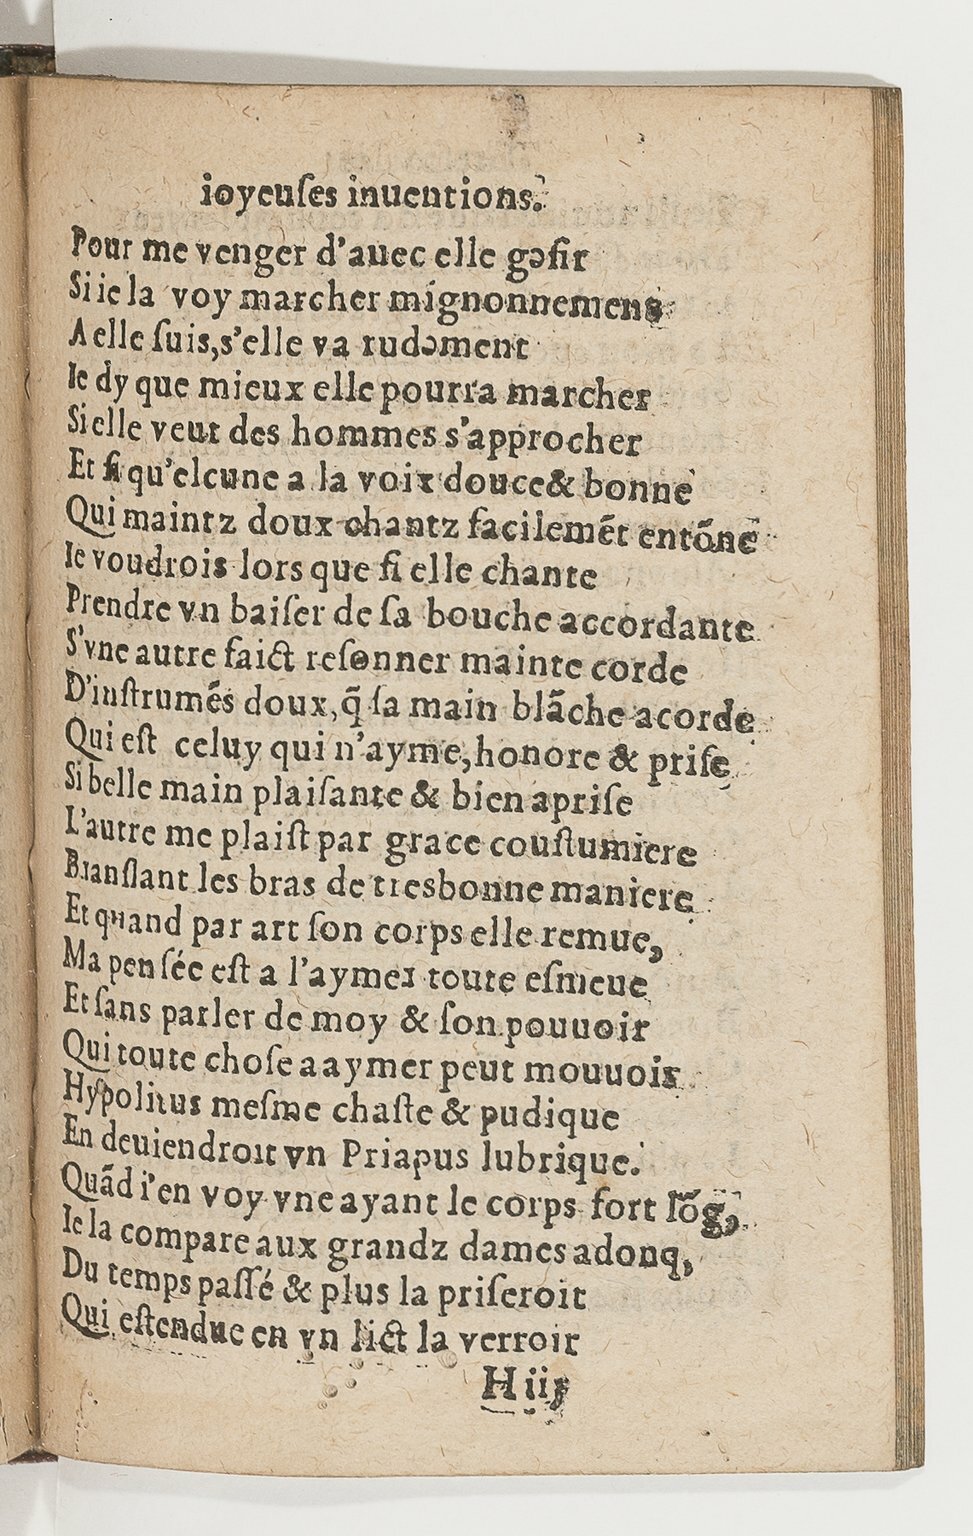 ioyeuſes inuentions.
Pour me venger d'auec elle geſir
Si ie la voy marcher mignonnemens
A elle ſuis, s'elle va rudement
Ie dy que mieux elle pourra marcher
Si elle veut des hommes s'approcher
Et ſi qu'elcune a la voix douce & bonne
Qui maintz doux chantz facilemẽt entõne
Ie voudrois lors que ſi elle chante
Prendre vn baiſer de ſa bouche accordante
S'vne autre faict reſonner mainte corde
D'inſtrumẽs doux, q̃ ſa main blãche acorde
Qui eſt celuy qui n'ayme, honore & priſe
Si belle main plaiſante & bien apriſe
L'autre me plaiſt par grace couſtumiere
Branſlant les bras de tresbonne maniere
Et quand par art ſon corps elle remue,
Ma penſée eſt a l'aymer toute eſmeue
Et ſans parler de moy & ſon pouuoir
Qui toute choſe a aymer peut mouuoir
Hyſpolitus meſme chaſte & pudique
En deuiendroit vn Priapus lubrique.
Quãd i'en voy vne ayant le corps fort lõg,
Ie la compare aux grandz dames adonq,
Du temps paſſé & plus la priſeroit
Qui eſtendue en vn lict la verroit
H iij